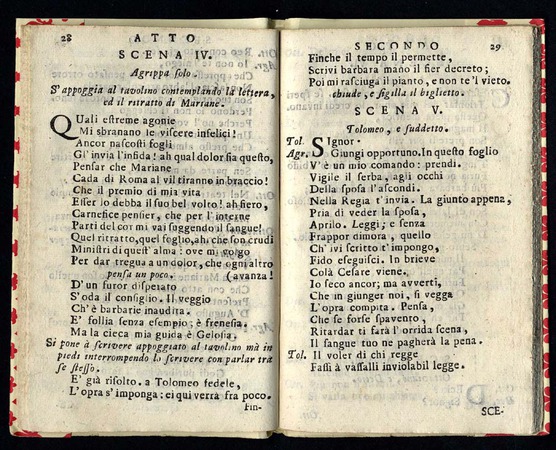 28
ATTO
SCENA IV.
Agrippa solo.
S'appoggia al tavolino contemplando la lettera,
ed il ritratto di Mariane.
QUali estreme agonie
Mi sbranano le viscere infelici!
Ancor nascosti fogli
Gl'invia l'infida! ah qual dolor sia questo,
Pensar che Mariane
Cada di Roma al vil tiranno in braccio!
Che il premio di mia vita
Esser lo debba il suo bel volto! ah fiero,
Carnefice pensier, che per l'interne
Parti del cor mi vai suggendo il sangue!
Quel ritratto, quel foglio, ahi che son crudi
Ministri di quell'alma: ove mi volgo
Per dar tregua a un dolor, che ogni altro
pensa un poco. (avanza!
D'un furor disperato
S'oda il consiglio. Il veggio
Ch'è barbarie inaudita.
E' follia senza esempio; è frenesia.
Ma la cieca mia guida è Gelosia.
Si pone à scrivere appoggiato al tavolino mà in
piedi interrompendo lo scrivere con parlar trà
se stesso.
E' già risolto. a Tolomeo fedele,
L'opra s'imponga: ei qui verrà fra poco.
Fin-
SECONDO
29
Finche il tempo il permette,
Scrivi barbara mano il fier decreto;
Poi mi rasciuga il pianto, e non te'l vieto.
chiude, e sigilla il biglietto.
SCENA V.
Tolomeo, e suddetto.
Tol. SIgnor.
Agr. Giungi opportuno. In questo foglio
V'è un mio comando: prendi.
Vigile il serba, agli occhi
Della sposa l'ascondi.
Nella Regia t'invia. La giunto appena,
Pria di veder la sposa,
Aprilo. Leggi; e senza
Frappor dimora, quello
Ch'ivi scritto t'impongo,
Fido eseguisci. In breve
Colà Cesare viene.
Io seco ancor; ma avverti,
Che in giunger noi, si vegga
L'opra compita. Pensa,
Che se forse spavento
Ritardar ti farà l'orrida scena,
Il sangue tuo ne pagherà la pena.
Tol. Il voler di chi regge
Fassi à vassalli inviolabil legge.
SCE-